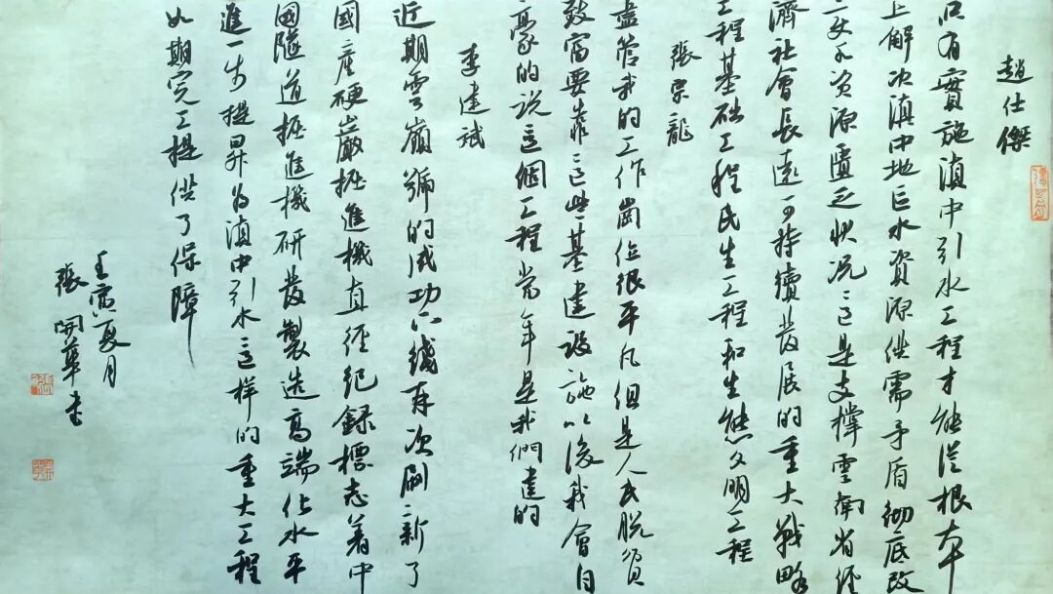 趙仕傑
只有實施滇中引水工程才能從根本
上解決滇中地區水資源供需矛盾彻底改
变水资源匱乏状况這是支撑雲南省经
濟社會長遠可持續发展的重大戰略
工程基础工程民生工程和生態文明工程
張宗龍
盡管我的工作崗位很平凡但是人民脱貧
致富要靠這些基建設施以後我會自
豪的说這個工程当年是我們建的
李建斌
近期雲嶺號的成功下线再次刷新了
國産硬巖掘進機直徑纪錄標志着中
國隧道掘進機研發製造高端化水平
進一步提昇为滇中引水這样的重大工程
如期完工提供了保障
壬寅夏月
張開華书